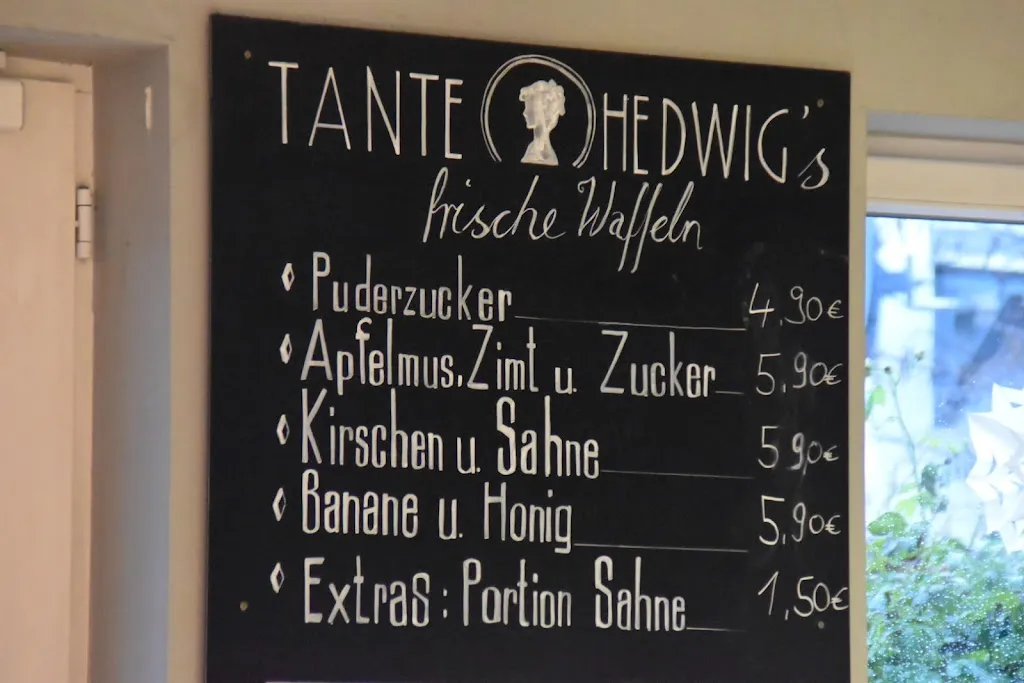 TANTE HEDWIG's
frische Waffeln
Puderzucker 4,90€
Apfelmus, Zimt u. Zucker 5,90€
Kirschen u. Sahne 5,90€
Banane u. Honig 5,90€
Extras: Portion Sahne 1,50€